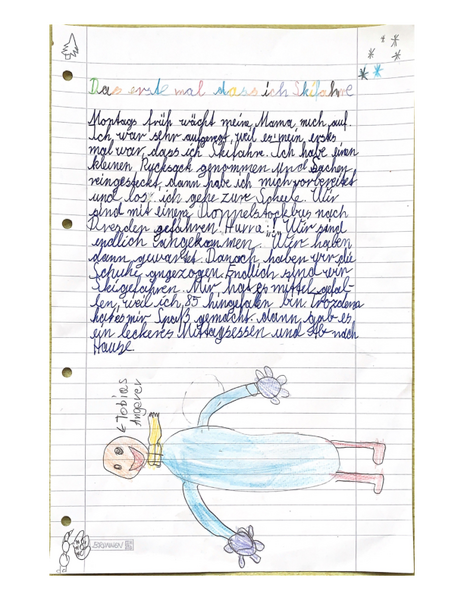 Das erste mal dass ich Skifahre
Montags früh wächt meine Mama mich auf.
Ich war sehr aufgeregt, weil es mein erstes
mal war, dass ich Skifahre. Ich habe einen
kleinen Rucksack genommen und Sachen
reingesteckt, dann habe ich mich vorbereitet
und los: ich gehe zur Schule. Wir
sind mit einem Doppelstockbus nach
Dresden gefahren! Hurra! Wir sind
endlich angekommen. Wir haben
dann gewartet. Danach haben wir die
Schuhe angezogen. Endlich sind wir
Skigefahren. Mir hat es mittel gefal-
len, weil ich 85 hingefalen bin. Trozdem
hat es mir Spaß gemacht, dann gab es
ein leckeres Mittagsessen und Ab nach
Hause.
Tobias
Angerer
BRUNNEN